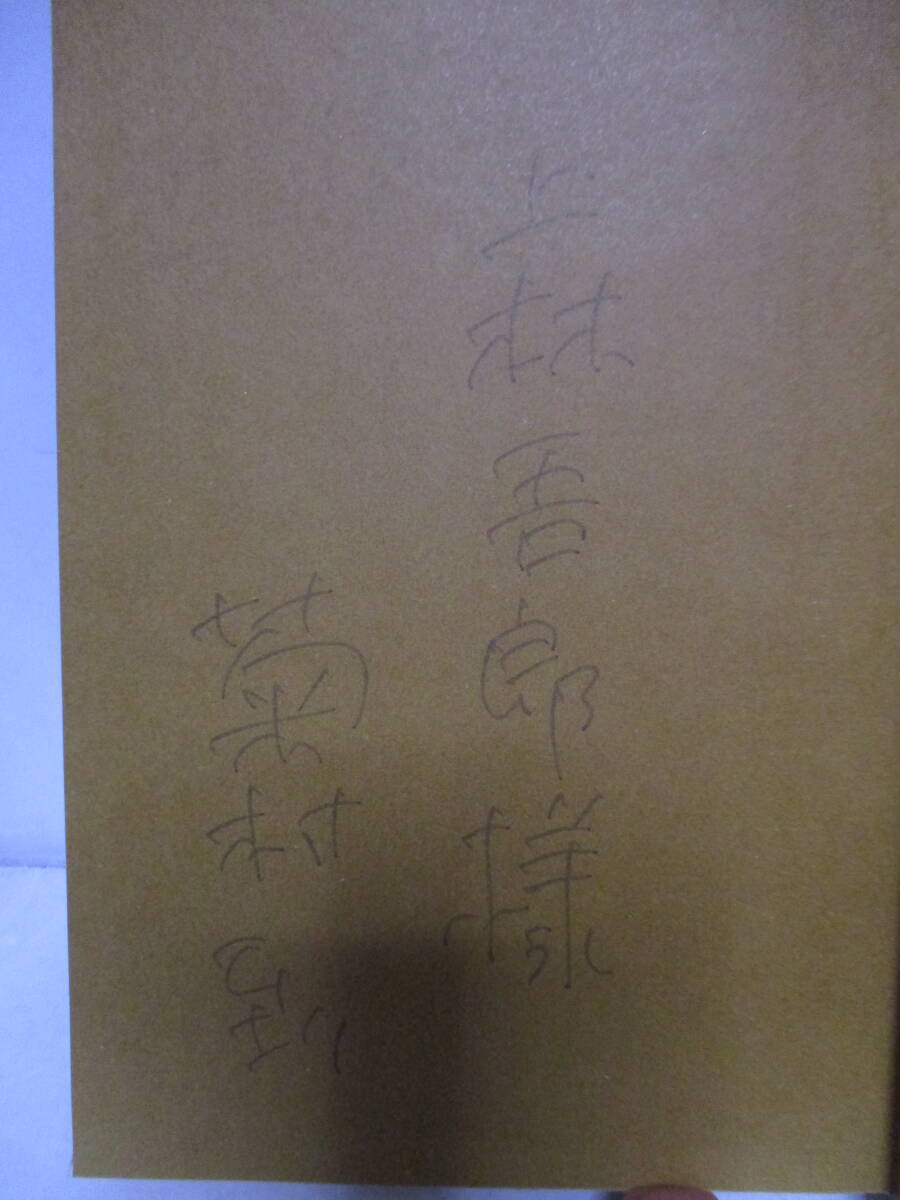 上林吾郎様
菊村到